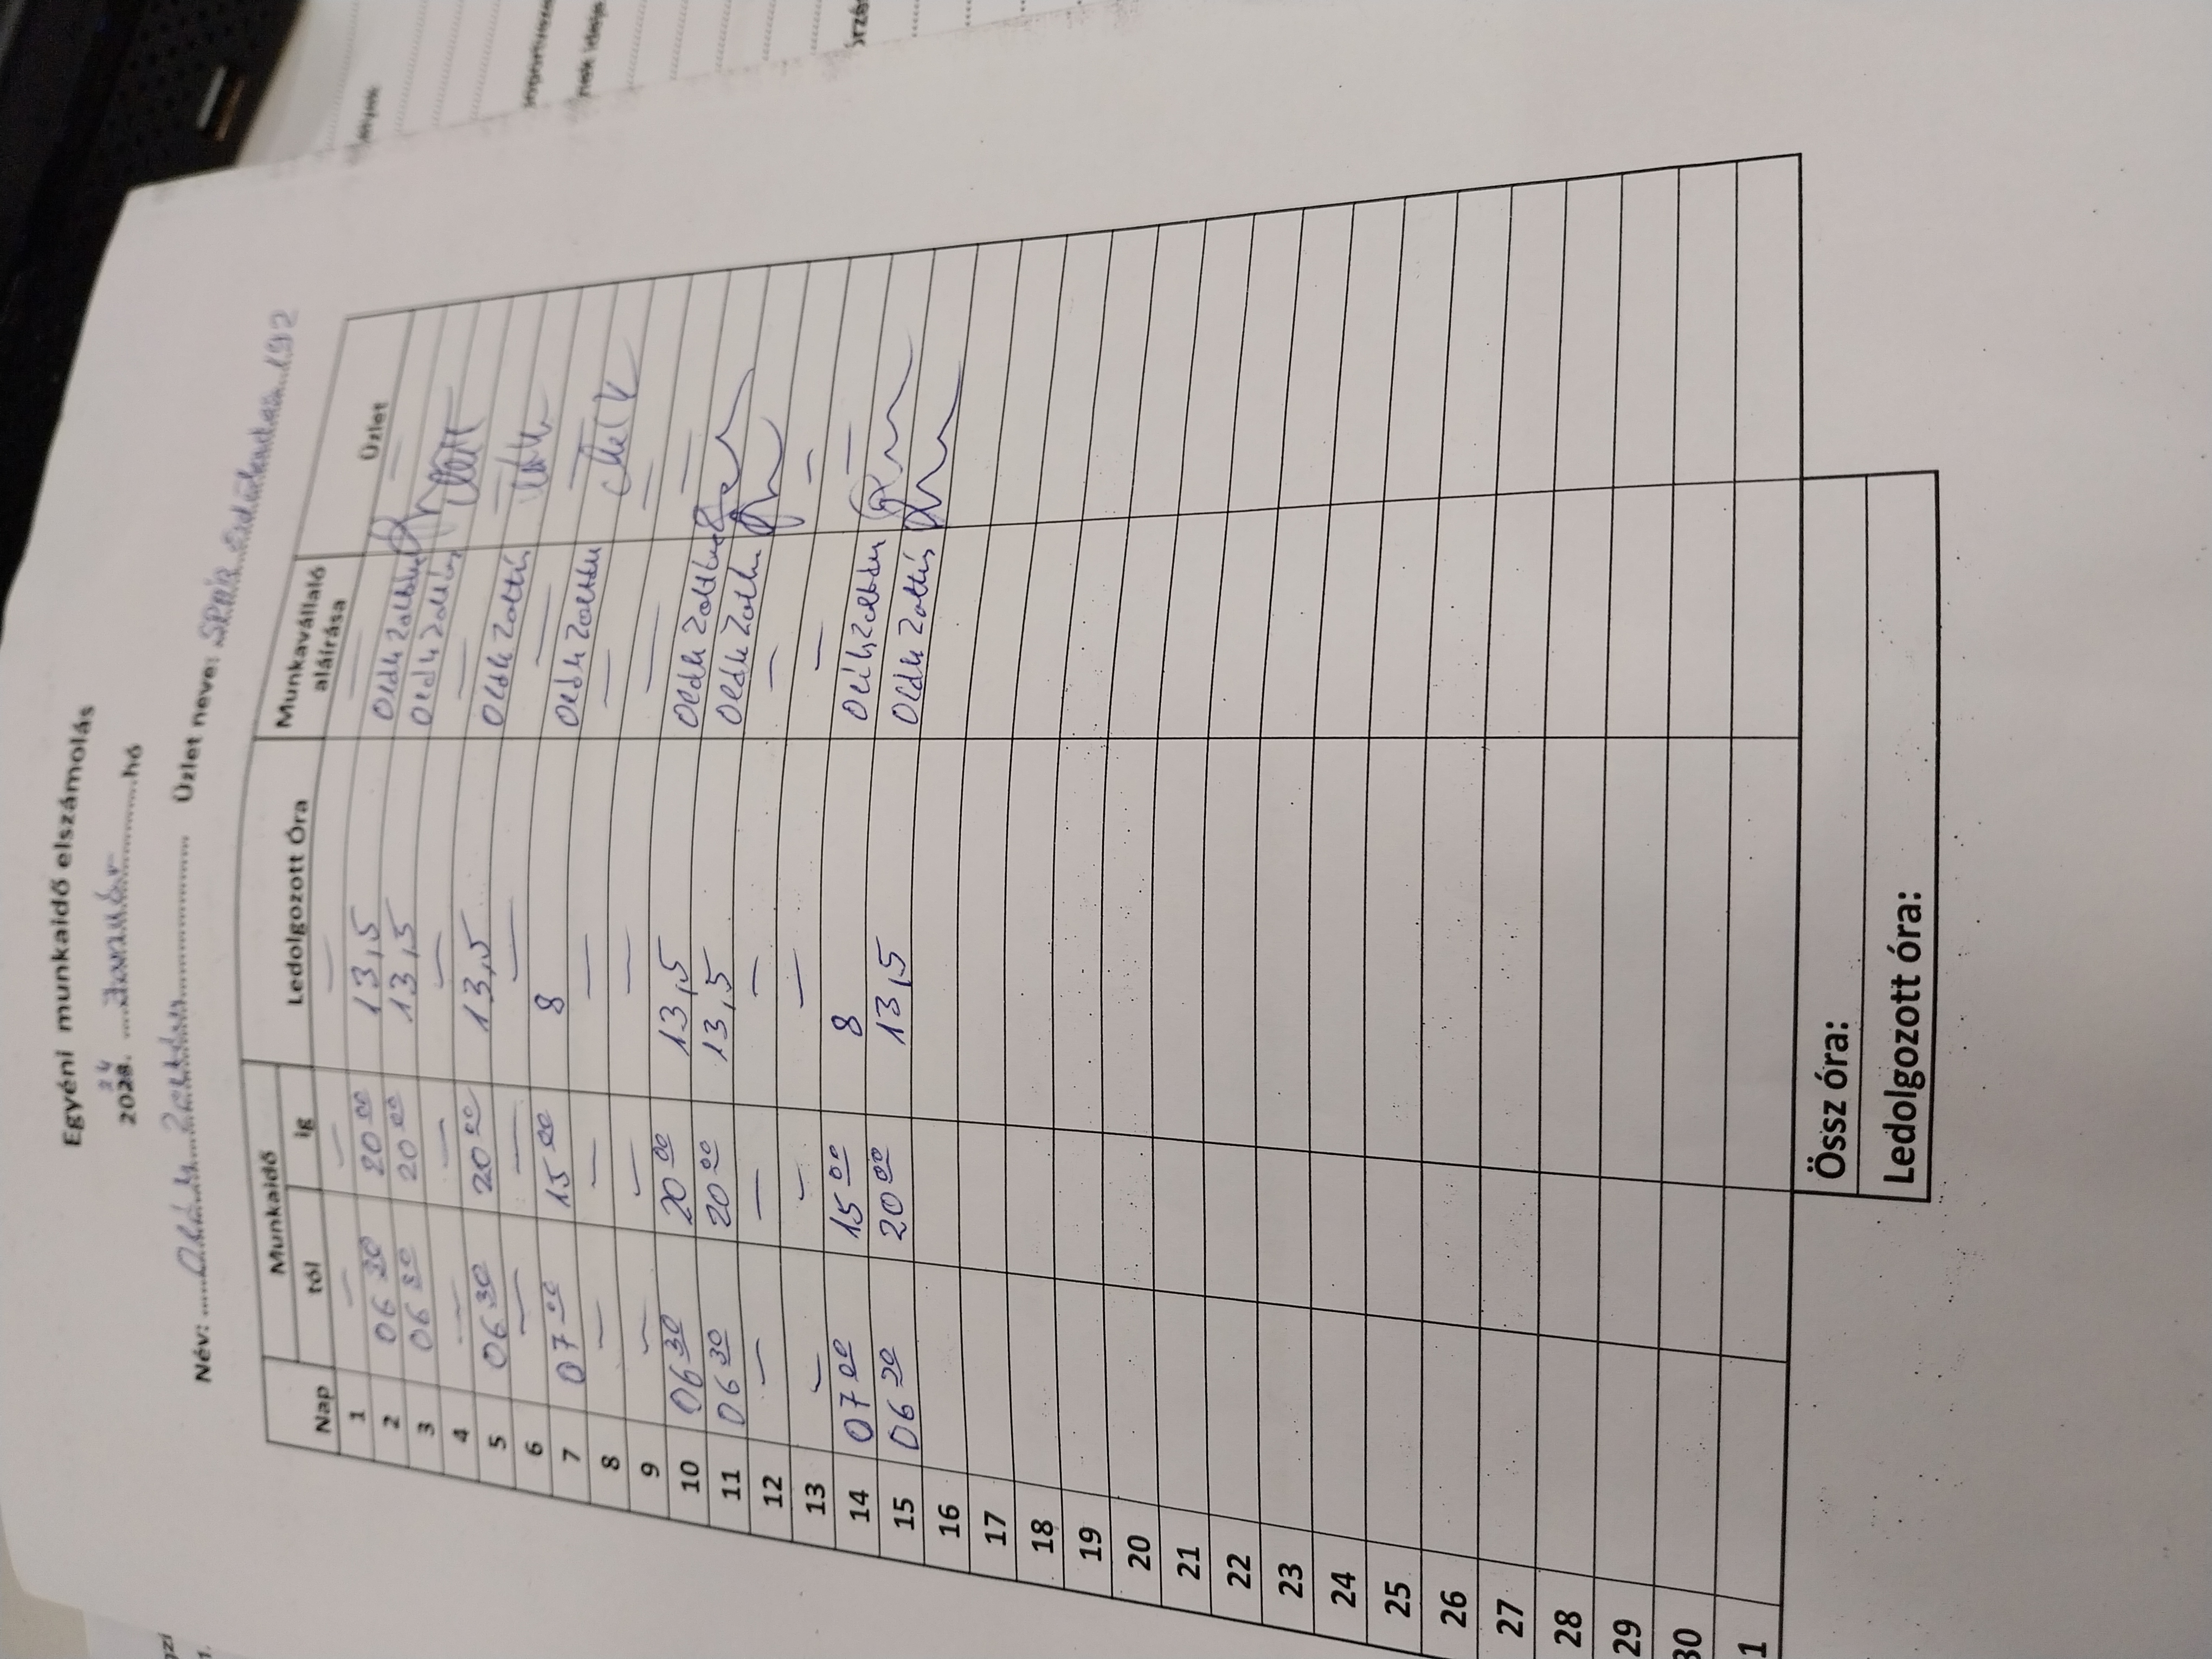 Egyéni munkaidő elszámolás
24
2023. Január hó
Név: Oláh Zoltán Üzlet neve: SPAR 192
Nap Munkaidő Ledolgozott Óra Munkavállaló aláírása Üzlet
tól ig
1 — — — — —
2 06 30 20 00 13,5 Oláh Zoltán
3 06 30 20 00 13,5 Oláh Zoltán
4 — — — — —
5 06 30 20 00 13,5 Oláh Zoltán
6 — — — — —
7 07 00 15 00 8 Oláh Zoltán
8 — — — — —
9 — — — — —
10 06 30 20 00 13,5 Oláh Zoltán
11 06 30 20 00 13,5 Oláh Zoltán
12 — — — —
13 — — — — —
14 07 00 15 00 8 Oláh Zoltán
15 06 30 20 00 13,5 Oláh Zoltán
16
17
18
19
20
21
22
23
24
25
26
27
28
29
30
1
Össz óra:
Ledolgozott óra: